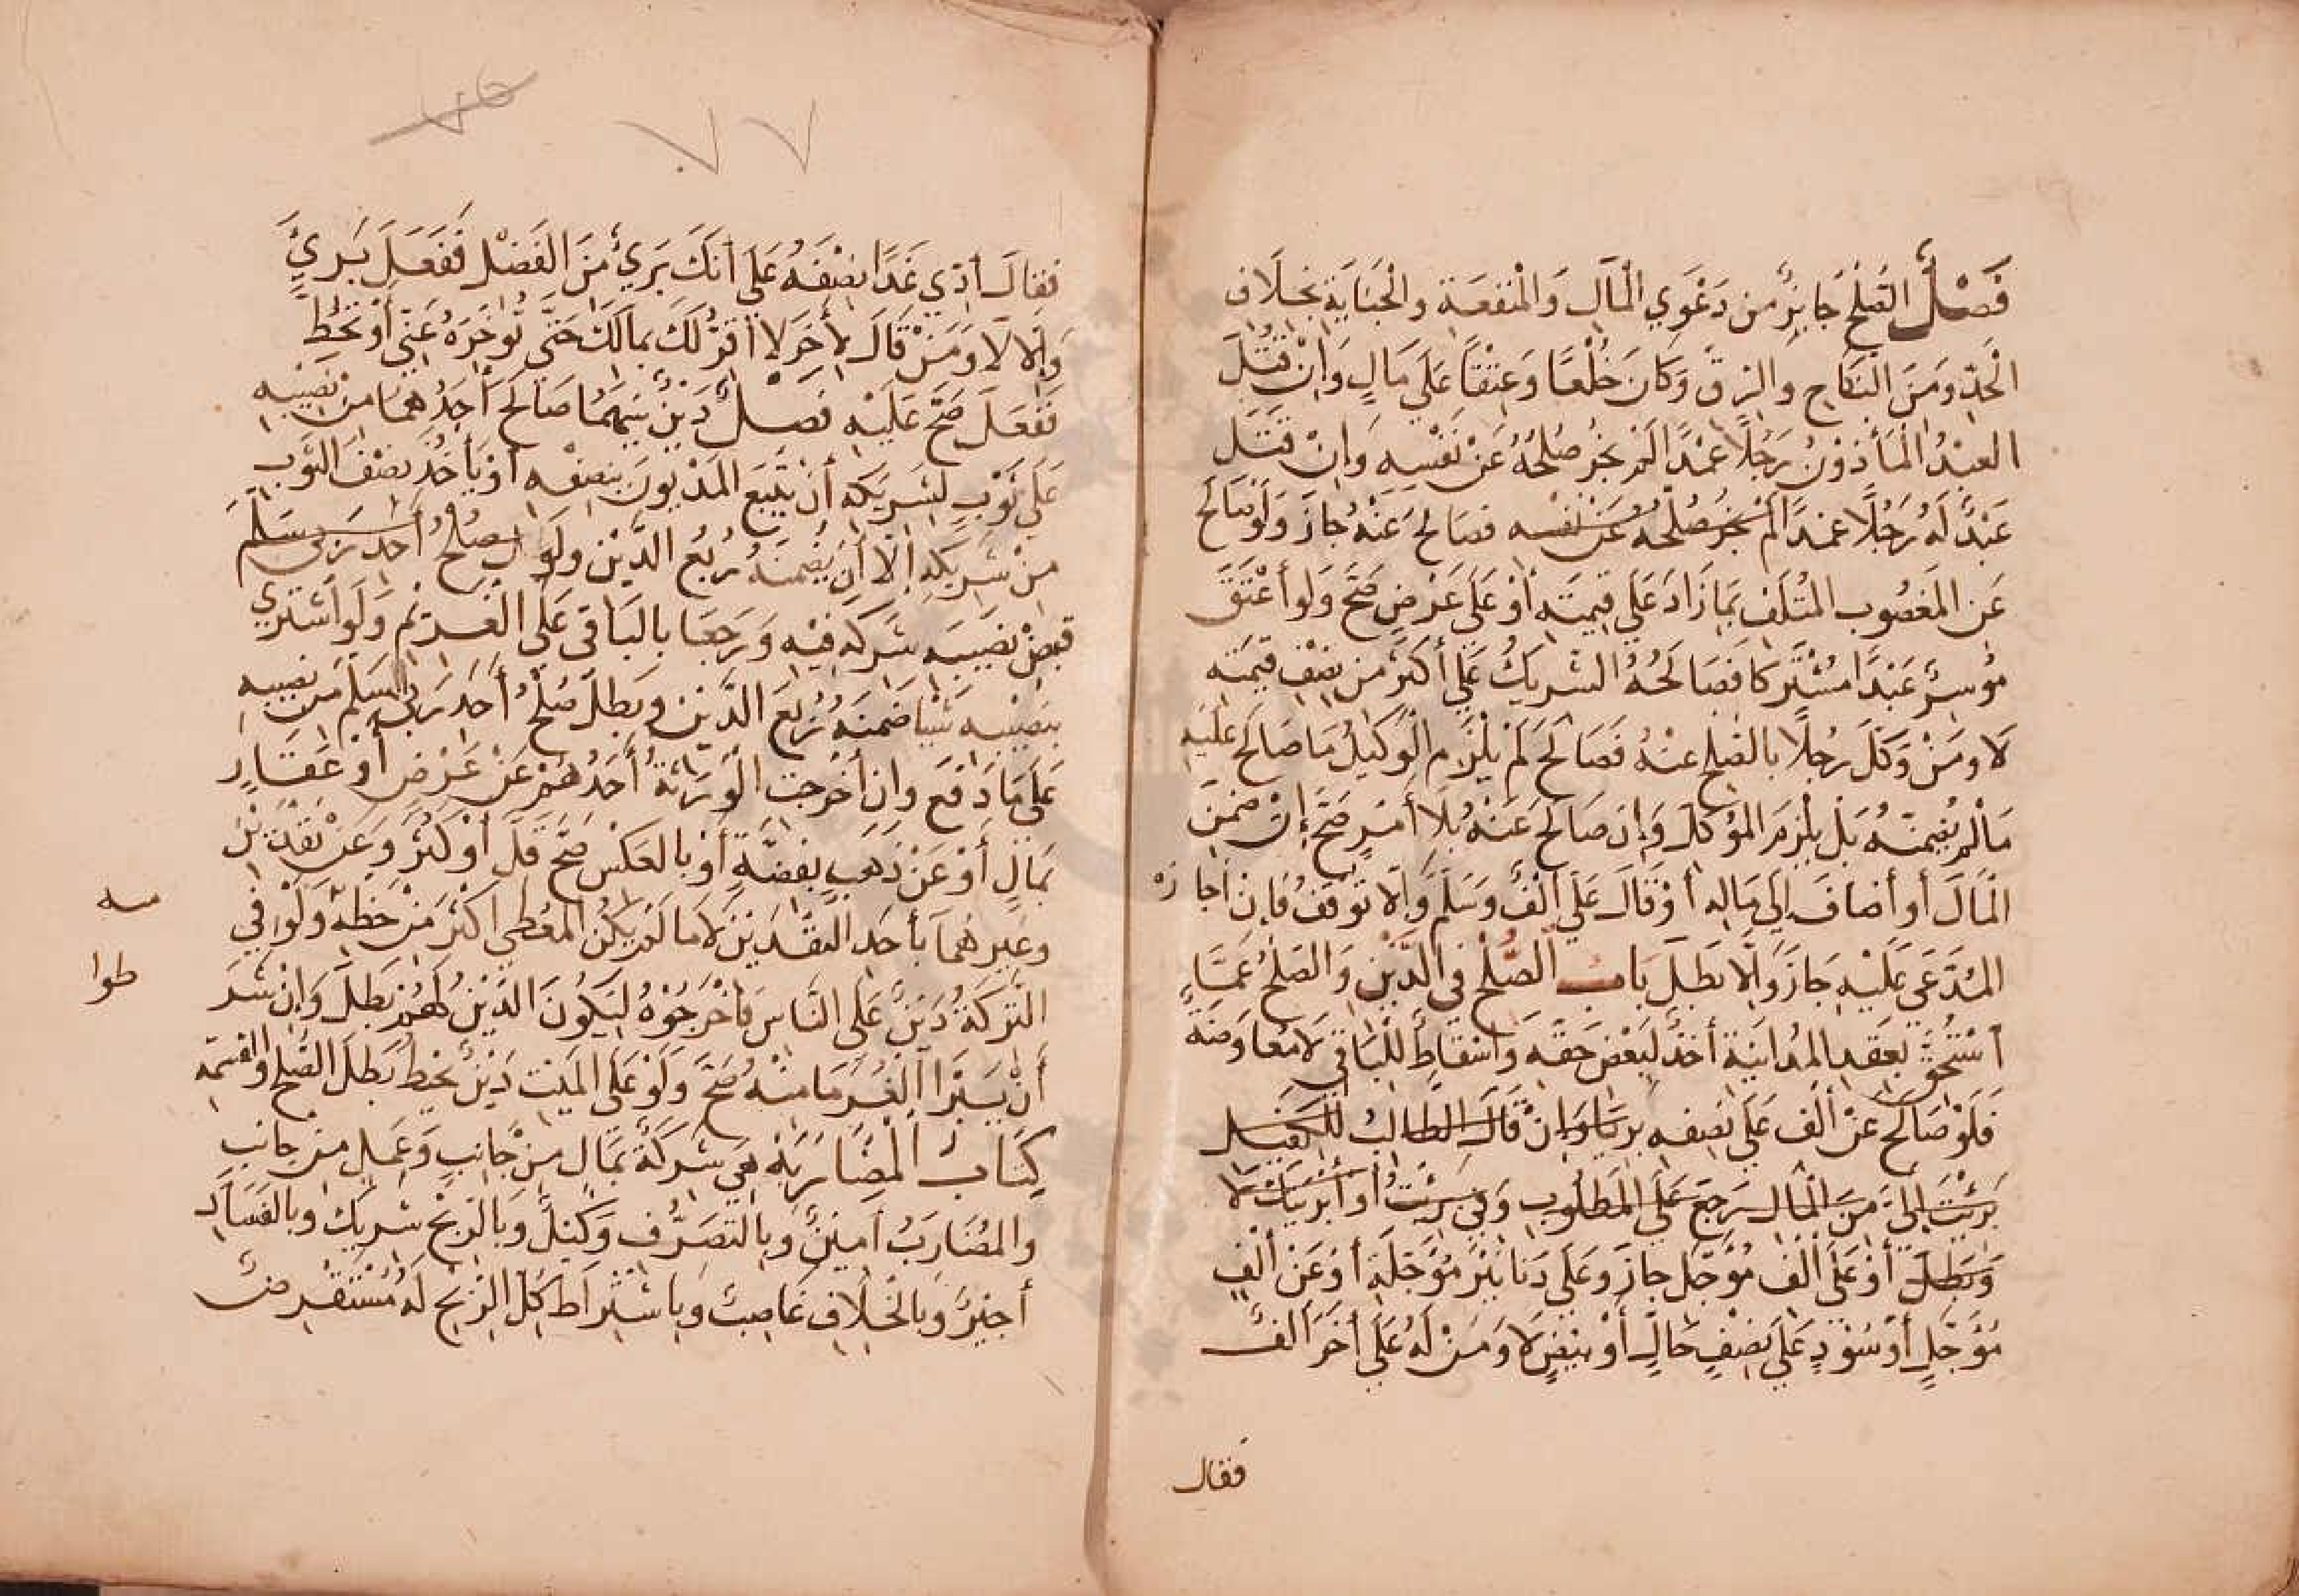 فَصْلٌ الصُّلْحُ جَايِزٌ من دَعْوَي الْمَالِ وَالْمَنْفعَة والْجنَايَة بخلَاف
الْحدِّ وَمنَ النّكَاحِ والرِقِّ وَكانَ خُلْعًا وَعِتْقًا عَلَي مَالٍ وَاِنْ قَتَلَ
العبْدُ الْمَأذوْنُ رَجُلًا عَمْدًا لَمْ يَجُزْ صُلْحُهُ عَنْ نَفْسِهِ وَاِنْ قَتَل
عَبْدٌ لَهُ رَجُلًا عَمْدًا لَمْ يَجُزْ صُلْحُهُ عَنْ نفْسِه فصَالحَ عَنْهُ جَازَ وَلَوْ صَالَحَ
عَن المَغصُوبِ المُتْلَفِ بِمَا زَادَ عَلَي قِيمَتِهِ أوْ عَلَي عَرْضٍ صَحَّ وَلَو أعْتَقَ
مُوْسِرٌ عَبْدًا مُشْتَرَكا فَصَالَحَهُ الشَرِيكُ عَلَي أكثَرَ مِنْ نِصْفِ قِيمَتِه
لَا وَمَنْ وَكّلَ رَجُلًا بالصُلحِ عنْهُ فَصَالَحَ لَمْ يَلْزَمِ الْوَكِيلَ مَا صَالحَ عَلَيْهِ
مَا لَمْ يَضْمَنْهُ بَلْ يَلْزَمُ المُوَكِّلَ وَإن صَالَحَ عَنْهُ بلَا أمْرٍ صَحَّ إنْ ضَمِنَ
الْمَالَ أو أضَافَ اِلَي مَالِه أوْ قَالَ عَلَي أَلْفٍ وَسَلَّمَ وَاِلَّا تَوَقّفُ فَاِنْ أجَازَهُ
المُدَّعَي عَلَيْهِ جَازَ وَاِلَّا بَطَلَ بَابُ الصُّلْحِ فِي الدَّيْنِ وَالصُلحُ عَمَّا
اسْتُحِقَّ بعَقدِ المُدَايَنَةِ أخْذٌ لِبَعْضِ حَقّهِ وَاسْقَاطٌ للْبَاقِي لَا مُعَاوَضَة
فَلَوْ صَالَحَ عَنْ ألْفٍ عَلَي نصِفِهِ بَرِيَا وَاِنْ قَالَ الطَالِبُ لِلكَفِيلِ
بَرِئْتَ اِلَيَّ مِنَ المَالِ رَجَعَ عَلَي المَطلُوبِ وَفِي بَرِئْتُ أو أبْرَيْتُكَ لَا
وَبَطلَ أوْ عَلَي ألْفٍ مُؤَجّلٍ جَازَ وَعَلَي دَنَانِيْرَ مُؤَجّلَةٍ أوْ عَنْ أَلْفٍ
مُؤَجَّلٍ أوْ سُوْدٍ عَلَي نِصْفٍ حَالٍّ أوْ بِيْضٍ لَا وَمَنْ لَهُ عَلَي أخَرَ ألفٌ
فَقال
٧٥
٧٧
فَقَالَ أدِّي غَدًا نِصْفَهُ عَلَي أنَّكَ بَرِيءٌ مِنَ الفَضْلِ فَفَعَلَ بَرِيٌ
وَإلا لَا وَمَنْ قَالَ لِأخَرَ لَا أُقِرُّ لَكَ بمَالِكَ حَتّي تُوَخِّرَهُ عَنّي أوْ تَحُطَّ
فَفَعَلَ صَحَّ عَلَيْهِ فَصْلٌ دَيْنٌ بَيْنَهُمَا صَالَحَ أحَدُهُمَا مِنْ نَصِيْبِهِ
عَلَي ثَوْبٍ لِشَرِيكِهِ أنْ يَتْبَعَ المَدْيُونَ بِنِصْفِهِ أوْ يَأخُذَ نِصْفَ الثَوْبِ
مِنْ شَرِيكِهِ اِلّا أنْ يَضْمَنَهُ رُبُعَ الدَّيْنِ وَلَو صُلحُ أحَدِ رَبَّي سَلَم
قَبَضَ نَصِيْبَه شَرِكَهُ فِيْهِ وَرَجَعَا بِالبَاقِي عَلَي الْغَرِيْمِ وَلَو اشْتَري
بنَصِيْبِه شَيْئًا ضَمِنَهُ رُبُعَ الدَّيْنِ وَبَطلَ صُلْحُ أحَدِ رَبَّي السَلَمِ مِنْ نَصِيْبِهِ
عَلَي مَا دَفَعَ وَاِن أخْرَجَت الْوَرَثَةُ أحَدَهُمْ عَنْ عَرْضٍ أوْ عَقَارٍ
بِمَالٍ أوْ عَنْ ذَهَبٍ بِفضَّةٍ أوْ بالعَكْسِ صَحَّ قَلَّ أوْ كَثُرَ وَعَنْ نَقْدَيْنِ
وغَيرِهُمَا بأحَدِ النَقْدَيْنِ لَا مَا لَمْ يَكُنِ المُعْطي أكْثَرَ مِنْ حَظّهِ وَلَوْ في
التَّرِكَةِ دَيْنٌ عَلَي النَّاسِ فَاَخْرَجُوْهُ لِيَكُونَ الدَّيْنُ لَهُمْ بَطَلَ وَاِنْ شَرَ
طوا
أنْ يَبْرَأ الْغُرَمَا مِنْهُ صَحَّ وَلَوْ عَلَي الْمَيّتِ دَيْنٌ مُحِيْطٌ بَطَلَ الصُّلحُ وَالقِسْمَه
كِتَابُ الْمُضَارَبَةِ هِيَ شرْكَةٌ بمَالٍ مِنْ جَانِبٍ وَعَمَلٍ مِنْ جَانِبٍ
والمُضَارِبُ أمِيْنٌ وَبِالتَصَرُّفِ وَكِيْلٌ وَبالرِبْحِ شَرِيكٌ وَبالفَسَادِ
أجِيْرٌ وَبِالخْلَافِ غَاصِبٌ وَباشْتِرَاطِ كُلِّ الرِبْحِ لَهُ مُسْتَقْرِضٌ